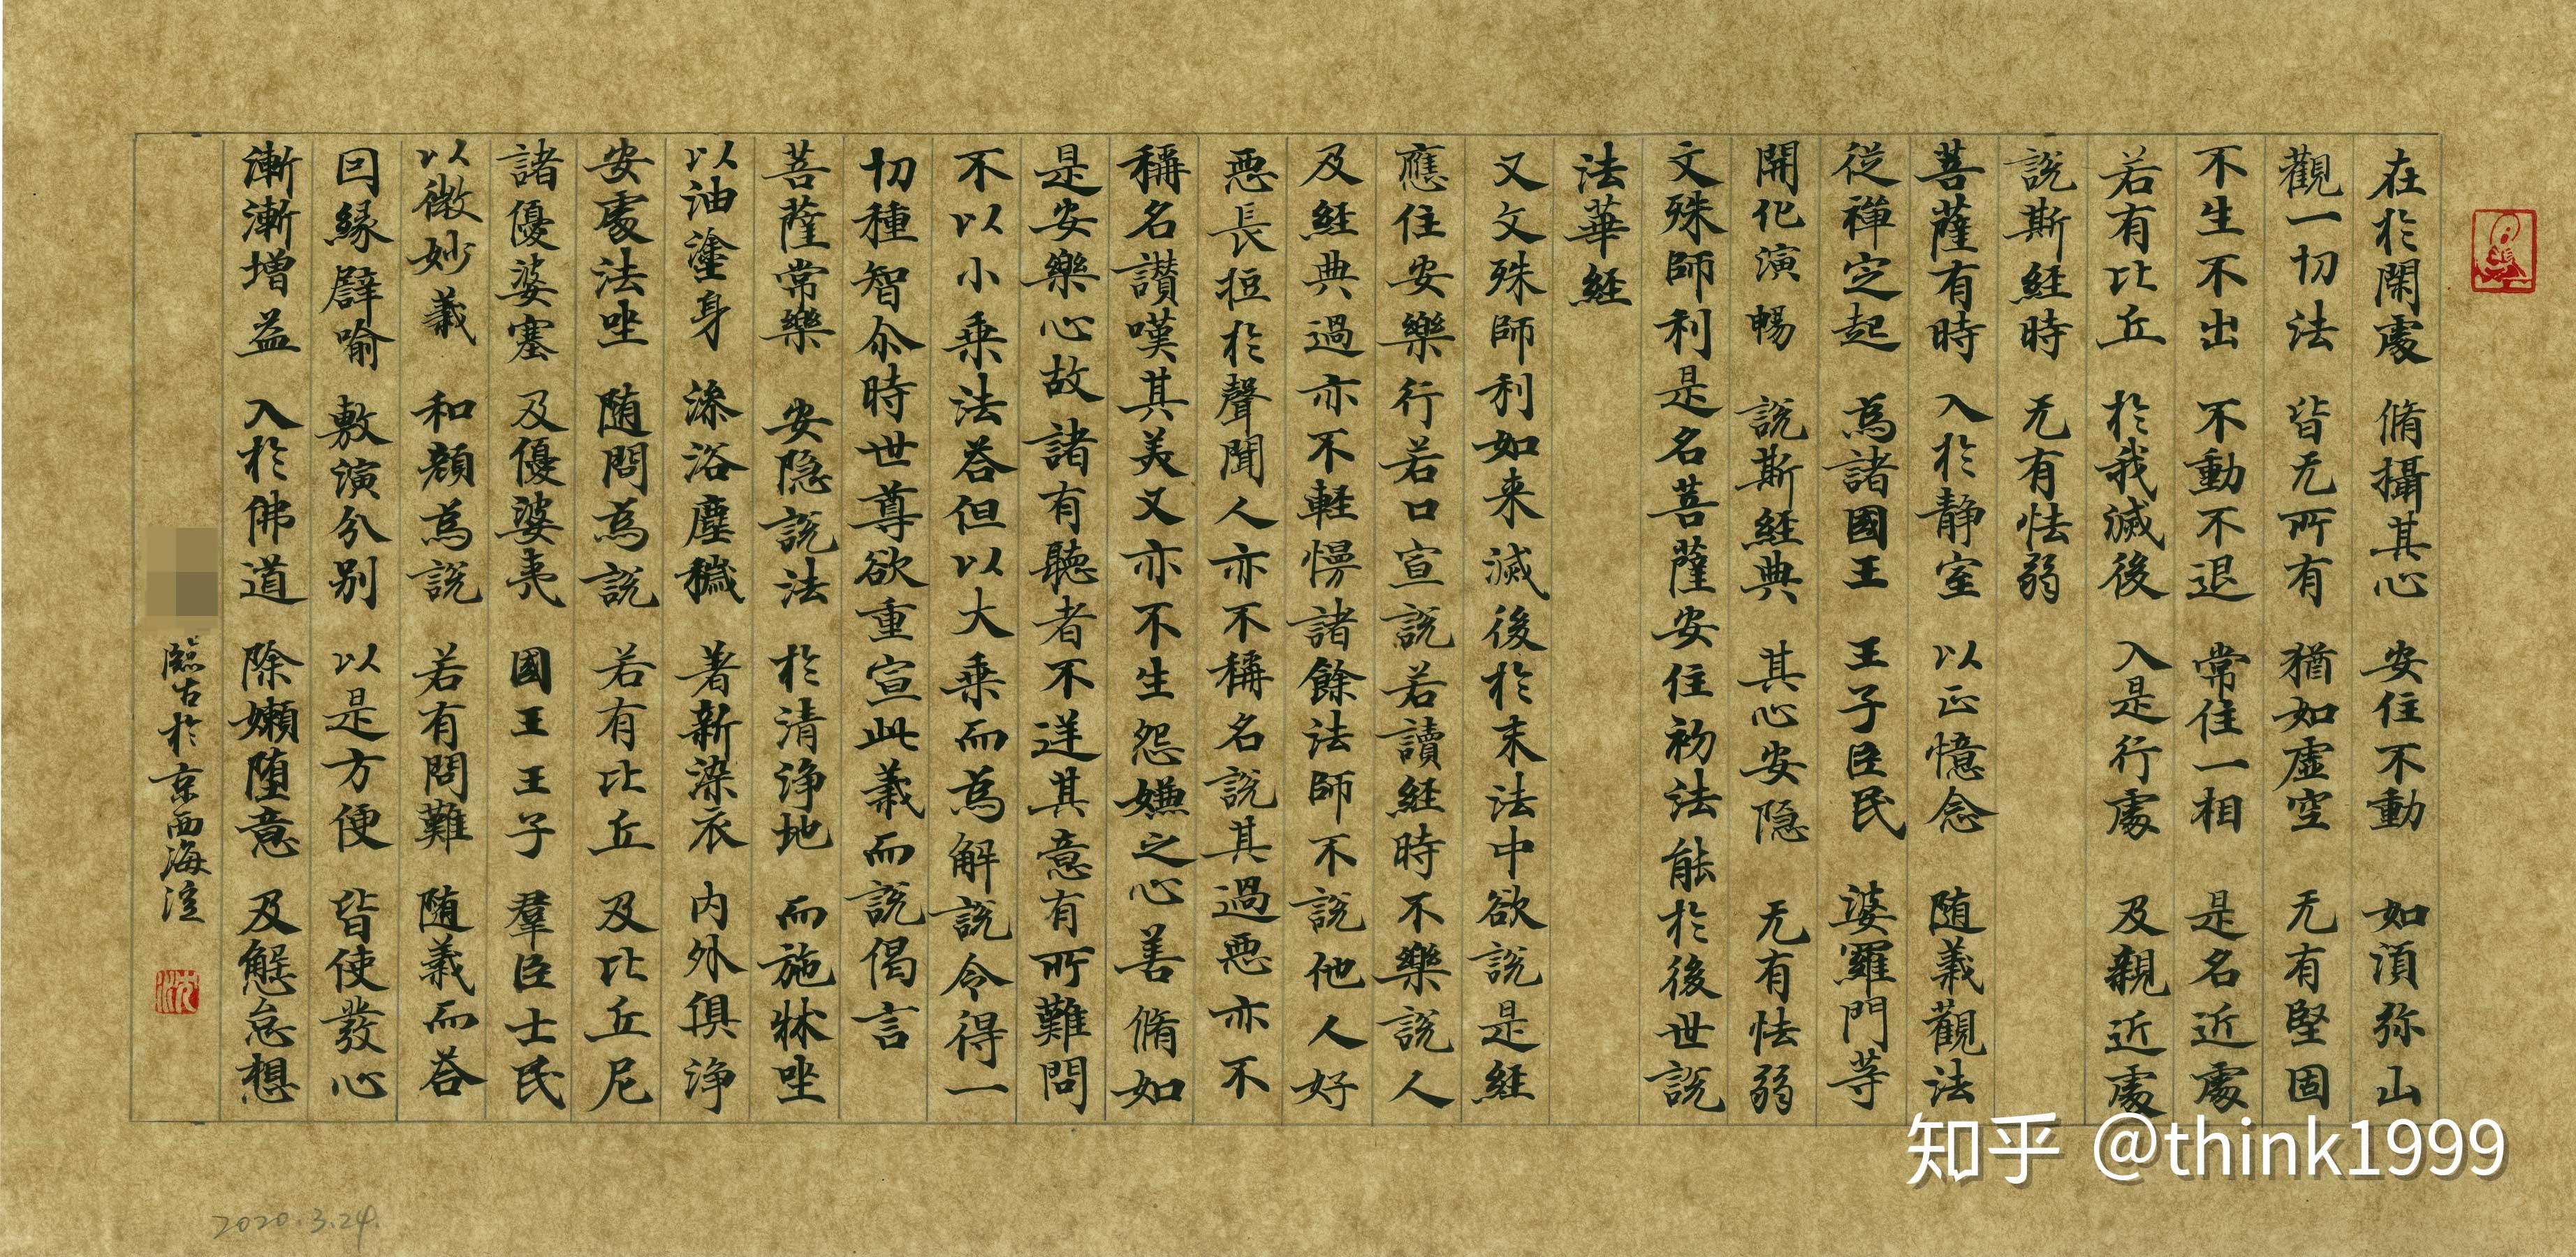 在於閑處 脩攝其心 安住不動 如湏弥山
觀一切法 皆无所有 猶如虛空 无有堅固
不生不出 不動不退 常住一相 是名近處
若有比丘 於我滅後 入是行處 及親近處
說斯經時 无有怯弱
菩薩有時 入於静室 以正憶念 随義觀法
從禪定起 為諸國王 王子臣民 婆羅門等
開化演暢 說斯經典 其心安隠 无有怯弱
文殊師利是名菩薩安住初法能於後世說
法華經
又文殊師利如来滅後於末法中欲說是經
應住安樂行若口宣說若讀經時不樂說人
及經典過亦不輕慢諸餘法師不說他人好
惡長短於聲聞人亦不稱名說其過惡亦不
稱名讃嘆其美又亦不生怨嫌之心善脩如
是安樂心故諸有聽者不逆其意有所難問
不以小乗法荅但以大乗而為解說令得一
切種智尒時世尊欲重宣此義而說偈言
菩薩常樂 安隠說法 於清浄地 而施牀坐
以油塗身 澡浴塵穢 著新染衣 内外俱浄
安處法坐 随問為說 若有比丘 及比丘尼
諸優婆塞 及優婆夷 國王王子 羣臣士民
以微妙義 和顔為說 若有問難 随義而荅
因縁譬喻 敷演分别 以是方便 皆使發心
漸漸增益 入於佛道 除嬾堕意 及懈怠想
臨古於京西海淀
2020.3.24.
知乎 @think1999